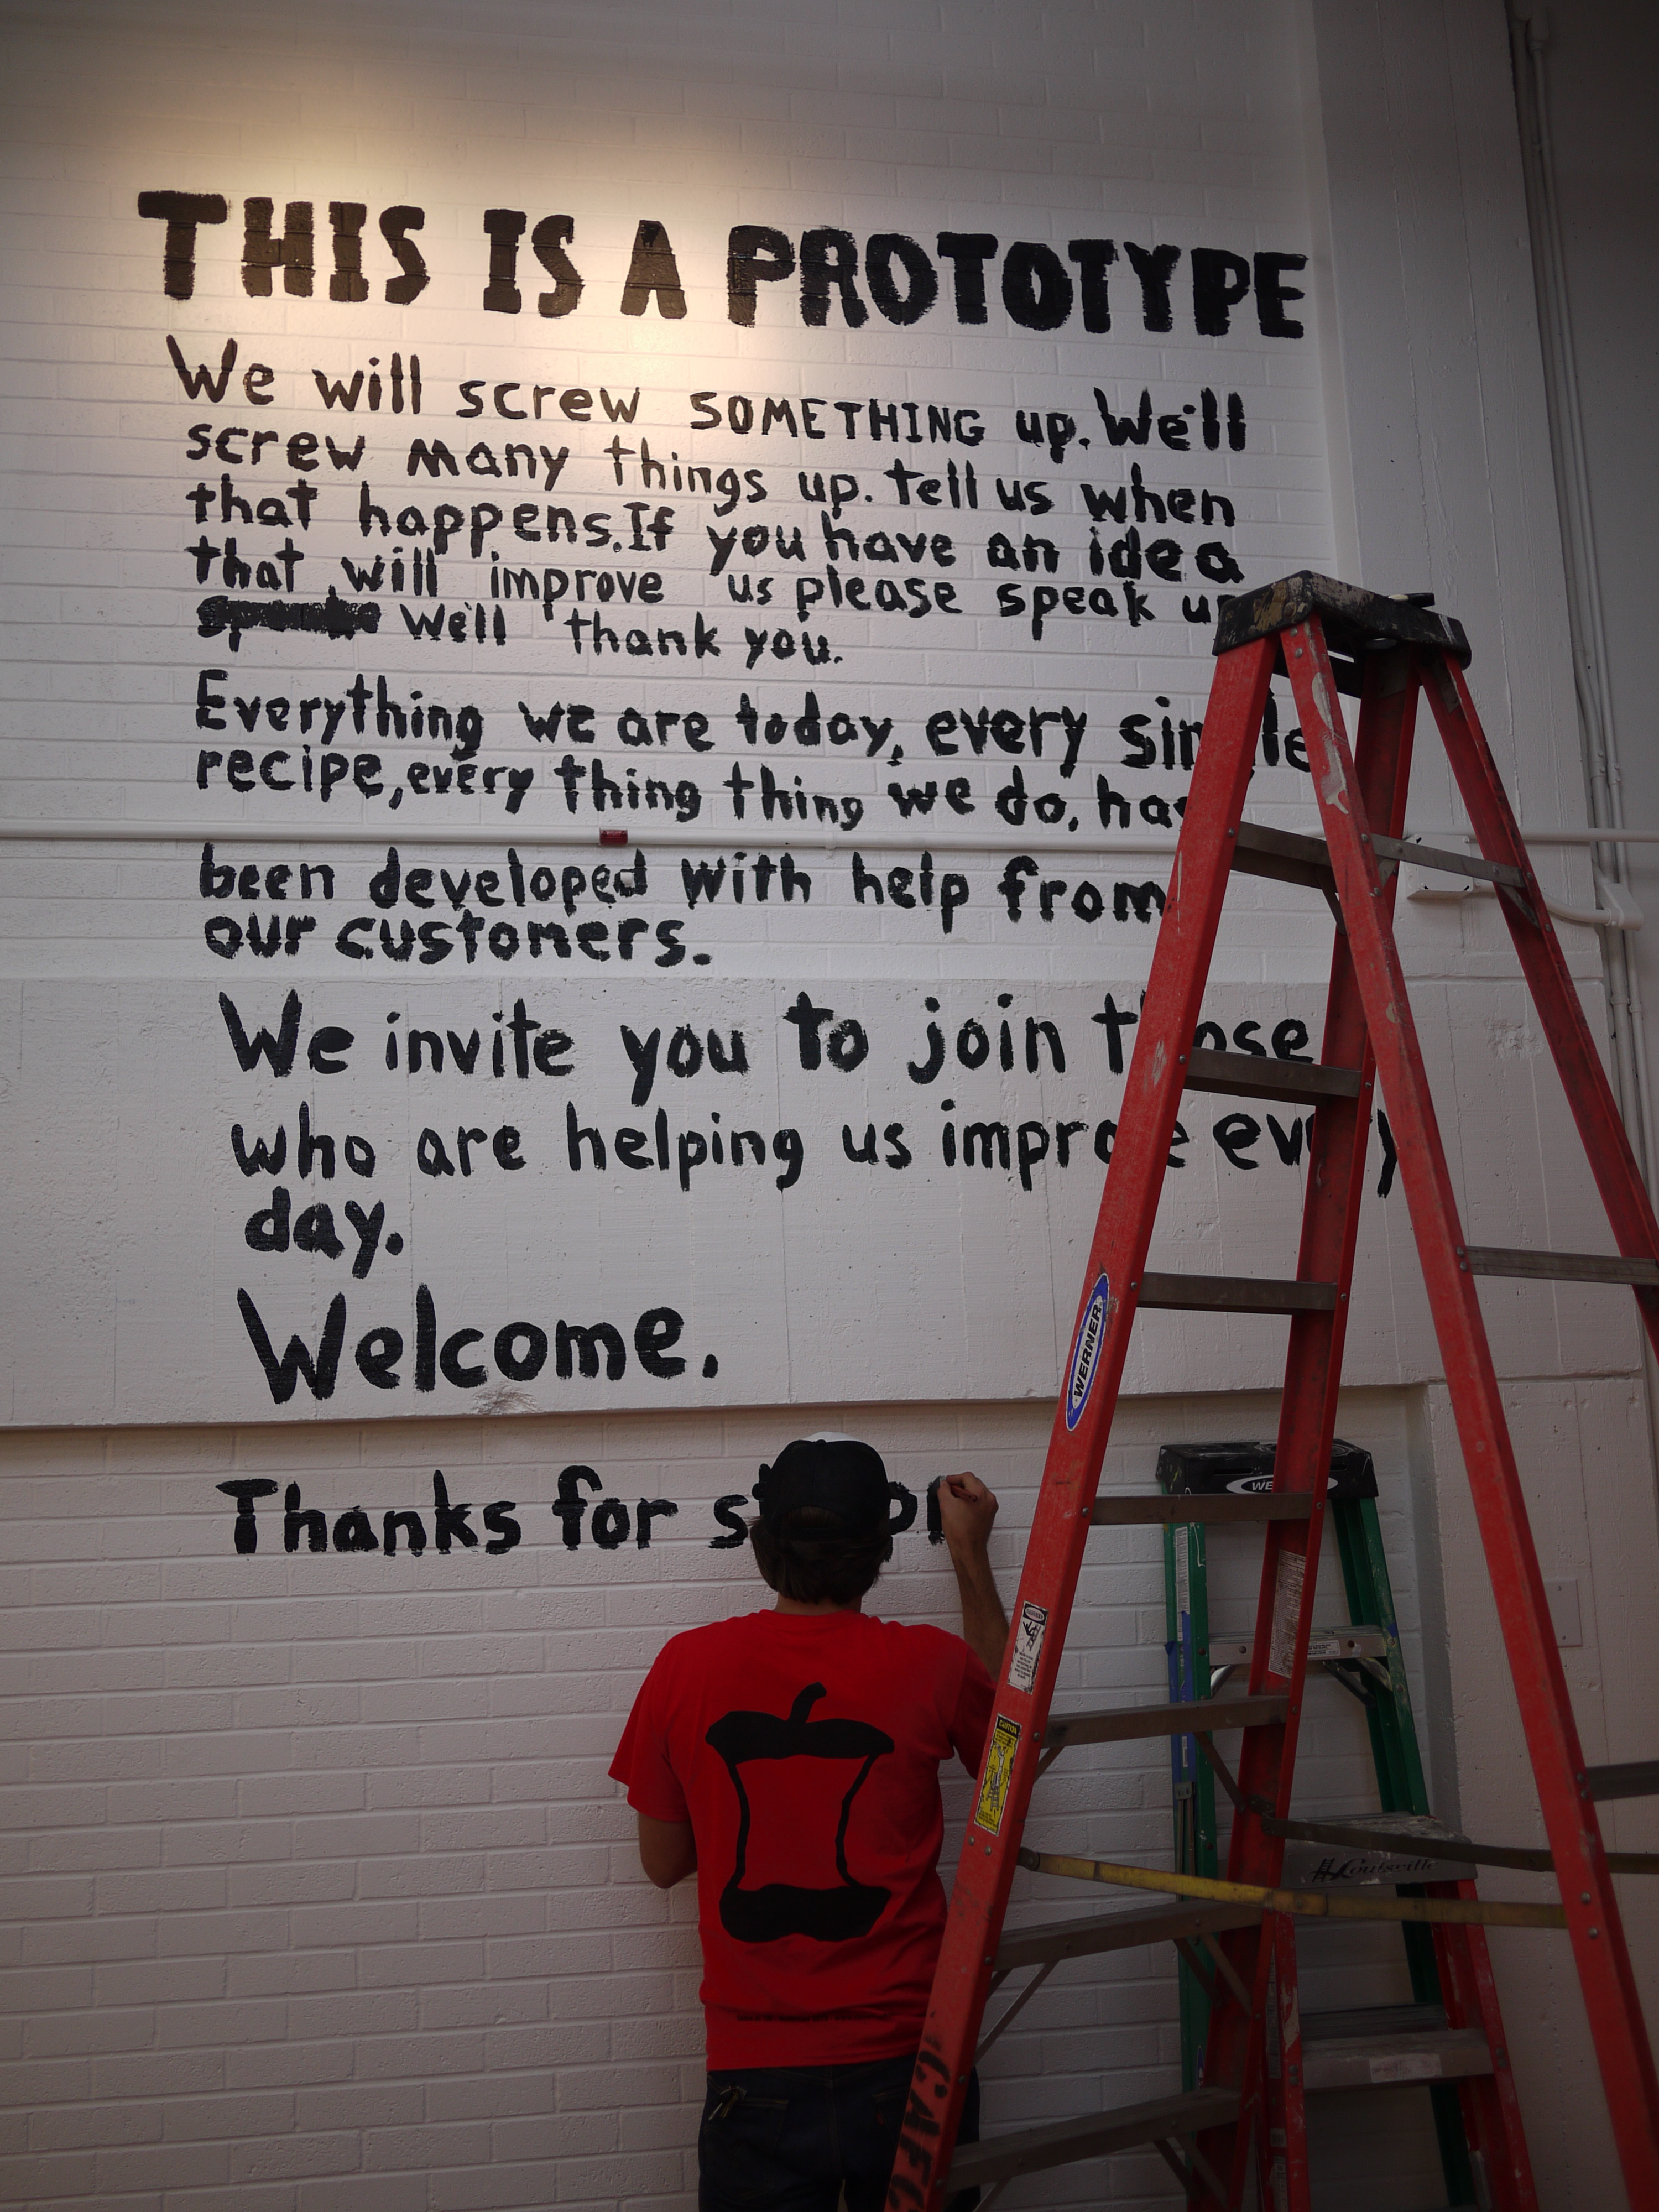 THIS IS A PROTOTYPE
We will screw SOMETHING up. We'll
screw many things up. tell us when
that happens. If you have an idea
that will improve us please speak
We'll thank you.
Everything we are today, every
recipe, every thing thing we do,
been developed with help from
our customers.
We invite you to join those
who are helping us improve every
day.
Welcome.
Thanks for
WERNER
Louisville
CAFE